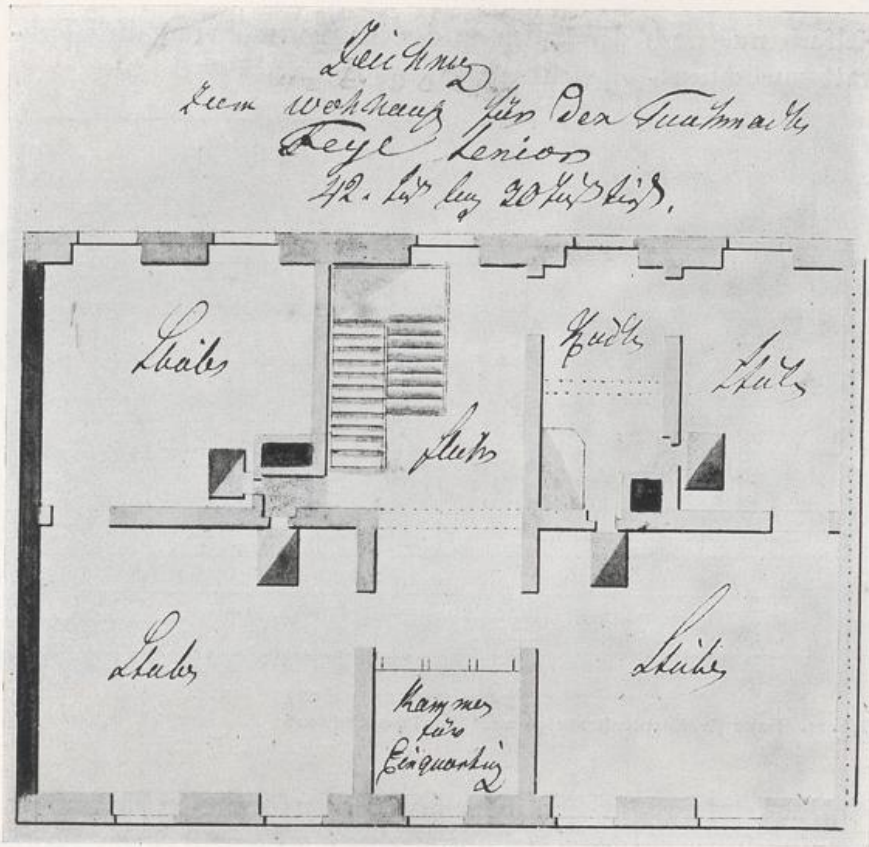 Zeichnug
zum wohnauß für den Tuchmach
Feye senior
42. fuß lang 30 fuß tief.
Stube
Küche
Stube
Fluhr
Stube
Stube
Kammer
für
Einquartirg